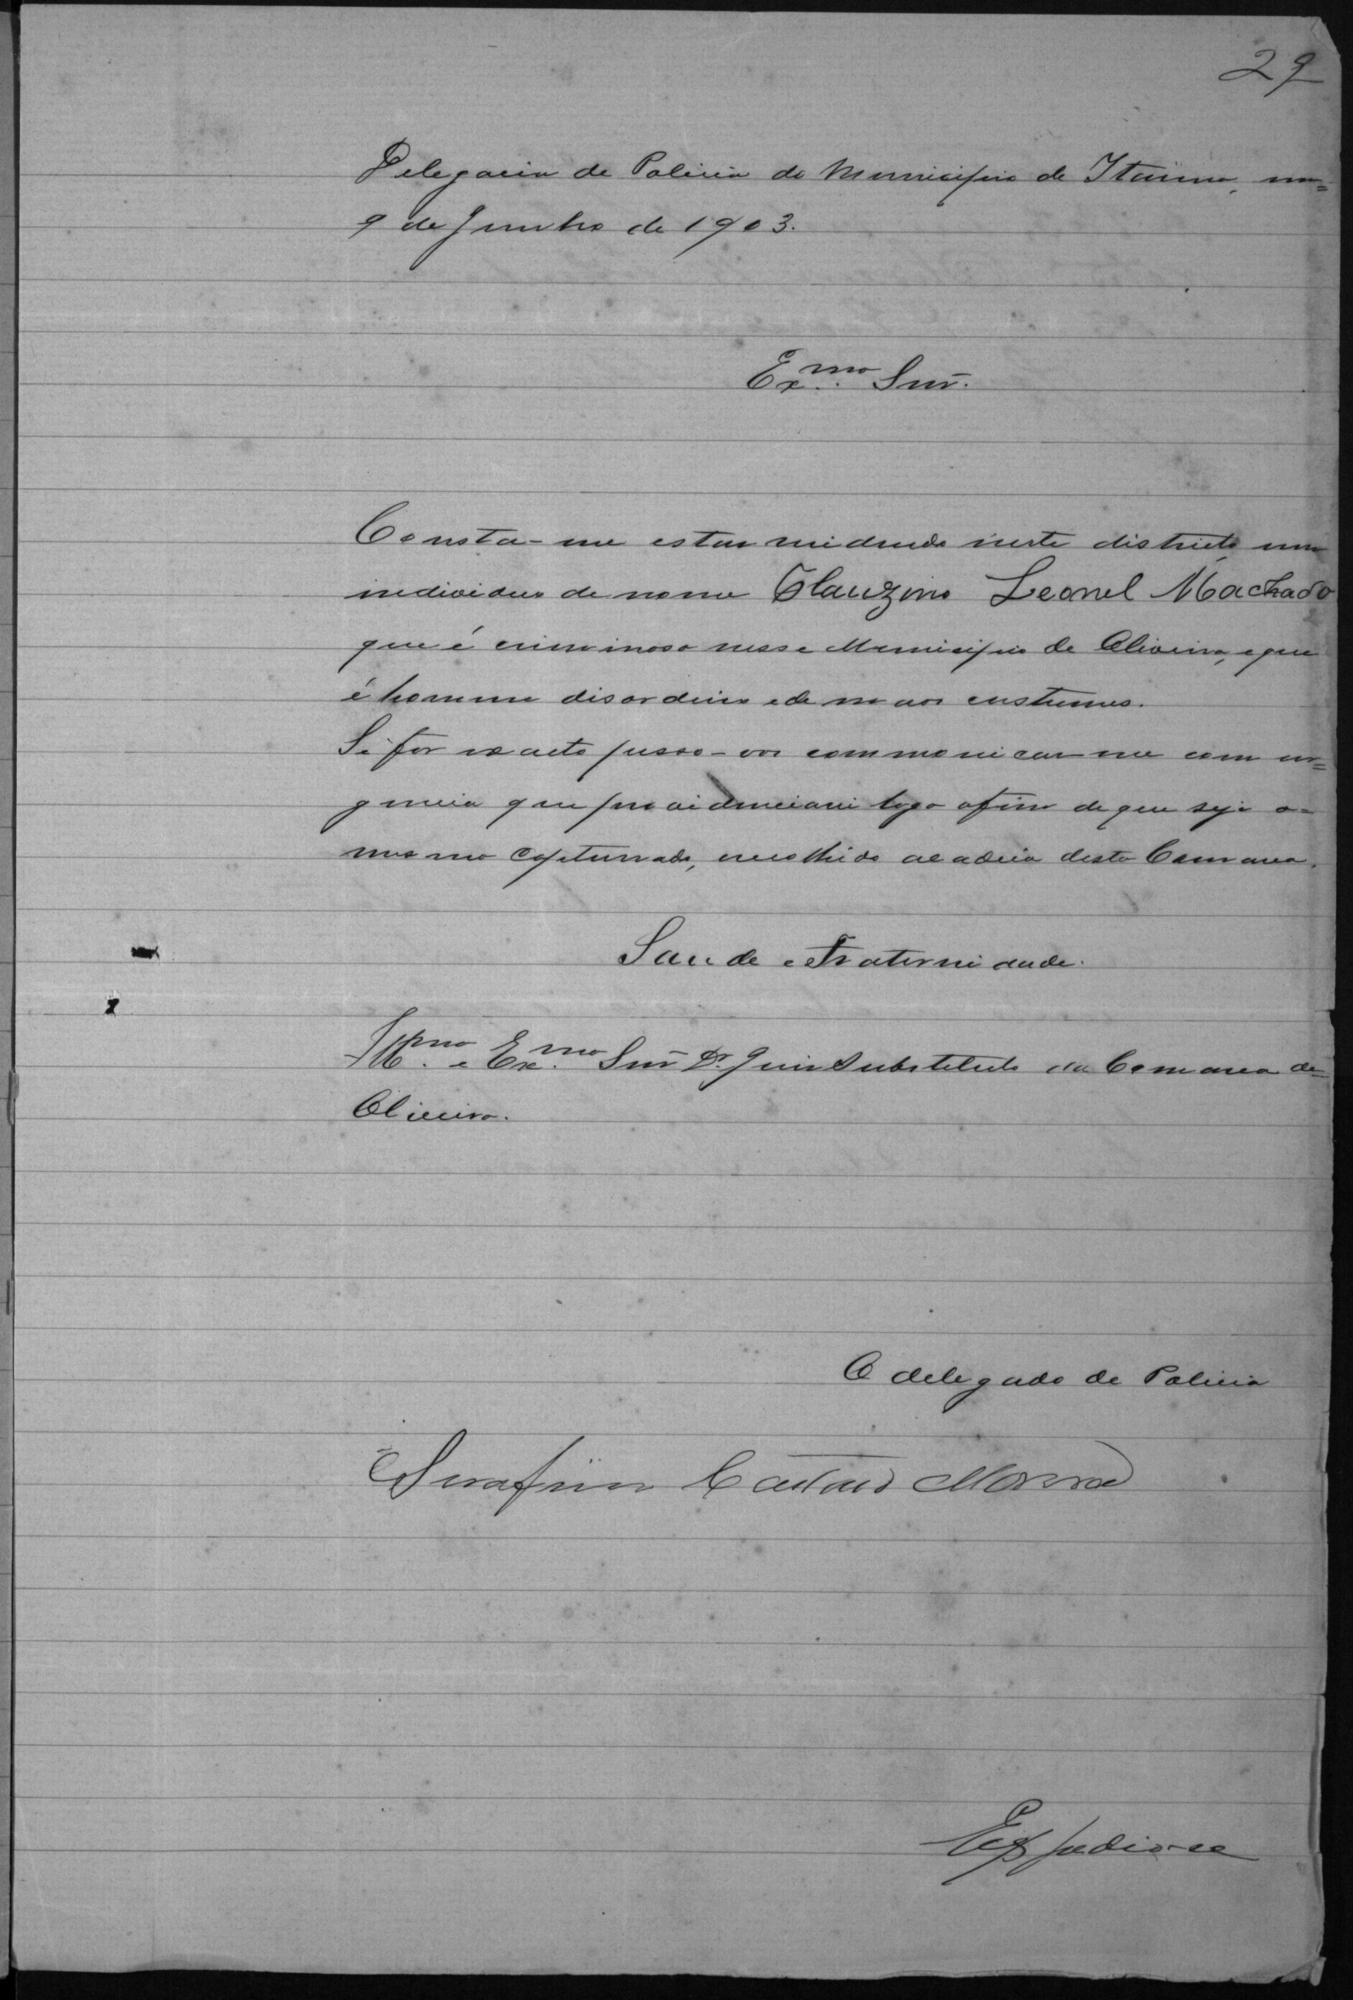 29
Delegacia de Policia do Municipio de Itaúna, em
9 de Junho de 1903.
Exmo. Snr.
Consta-me estar residindo neste districto um
individuo de nome Glauzino Leonel Machado
que é criminoso nesse Municipio de Oliveira, e que
é homem disordeiro e de maos custumes.
Si for exacto pesso-vos communicar me com ur=
gencia que providenciarei logo afim de que seja o
mesmo capturado, recolhido a cadeia desta Comarca.
Saude e Fraternidade.
Illmo. e Exmo. Snr. Dr. Juis Substituto da Comarca de
Oliveira.
O delegado de Policia
Serafim Caetano Moreira
Expedio-se